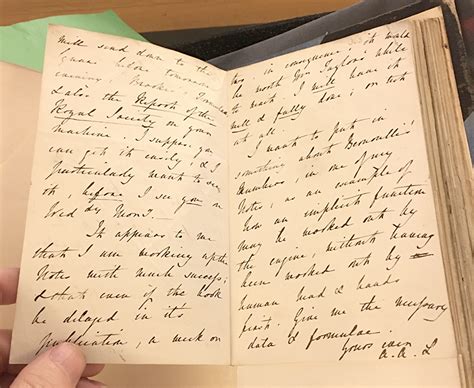 will send down to the
tomorrow
evening, Brooke's Formulae,
& also the Report of the
Royal Society on your
machine. I suppose you
can get it easily, & I
particularly want to see
it, before I see you on
Wed dy Morng.
It appears to me
that I am working up the
Notes with much success;
& that even if the book
be delayed in its
publication, a week or
two, in consequence, it would
be worth Mr Taylor's while
to wait. I will have it
well & fully done; or not
at all.
I want to put in
something about Bernouilli's
Numbers, in one of my
Notes, as an example of
how an implicit function
may be worked out by
the engine, without having
been worked out by
human head & hands
first. Give me the necessary
data & formulae.
Yours ever
A. A. L